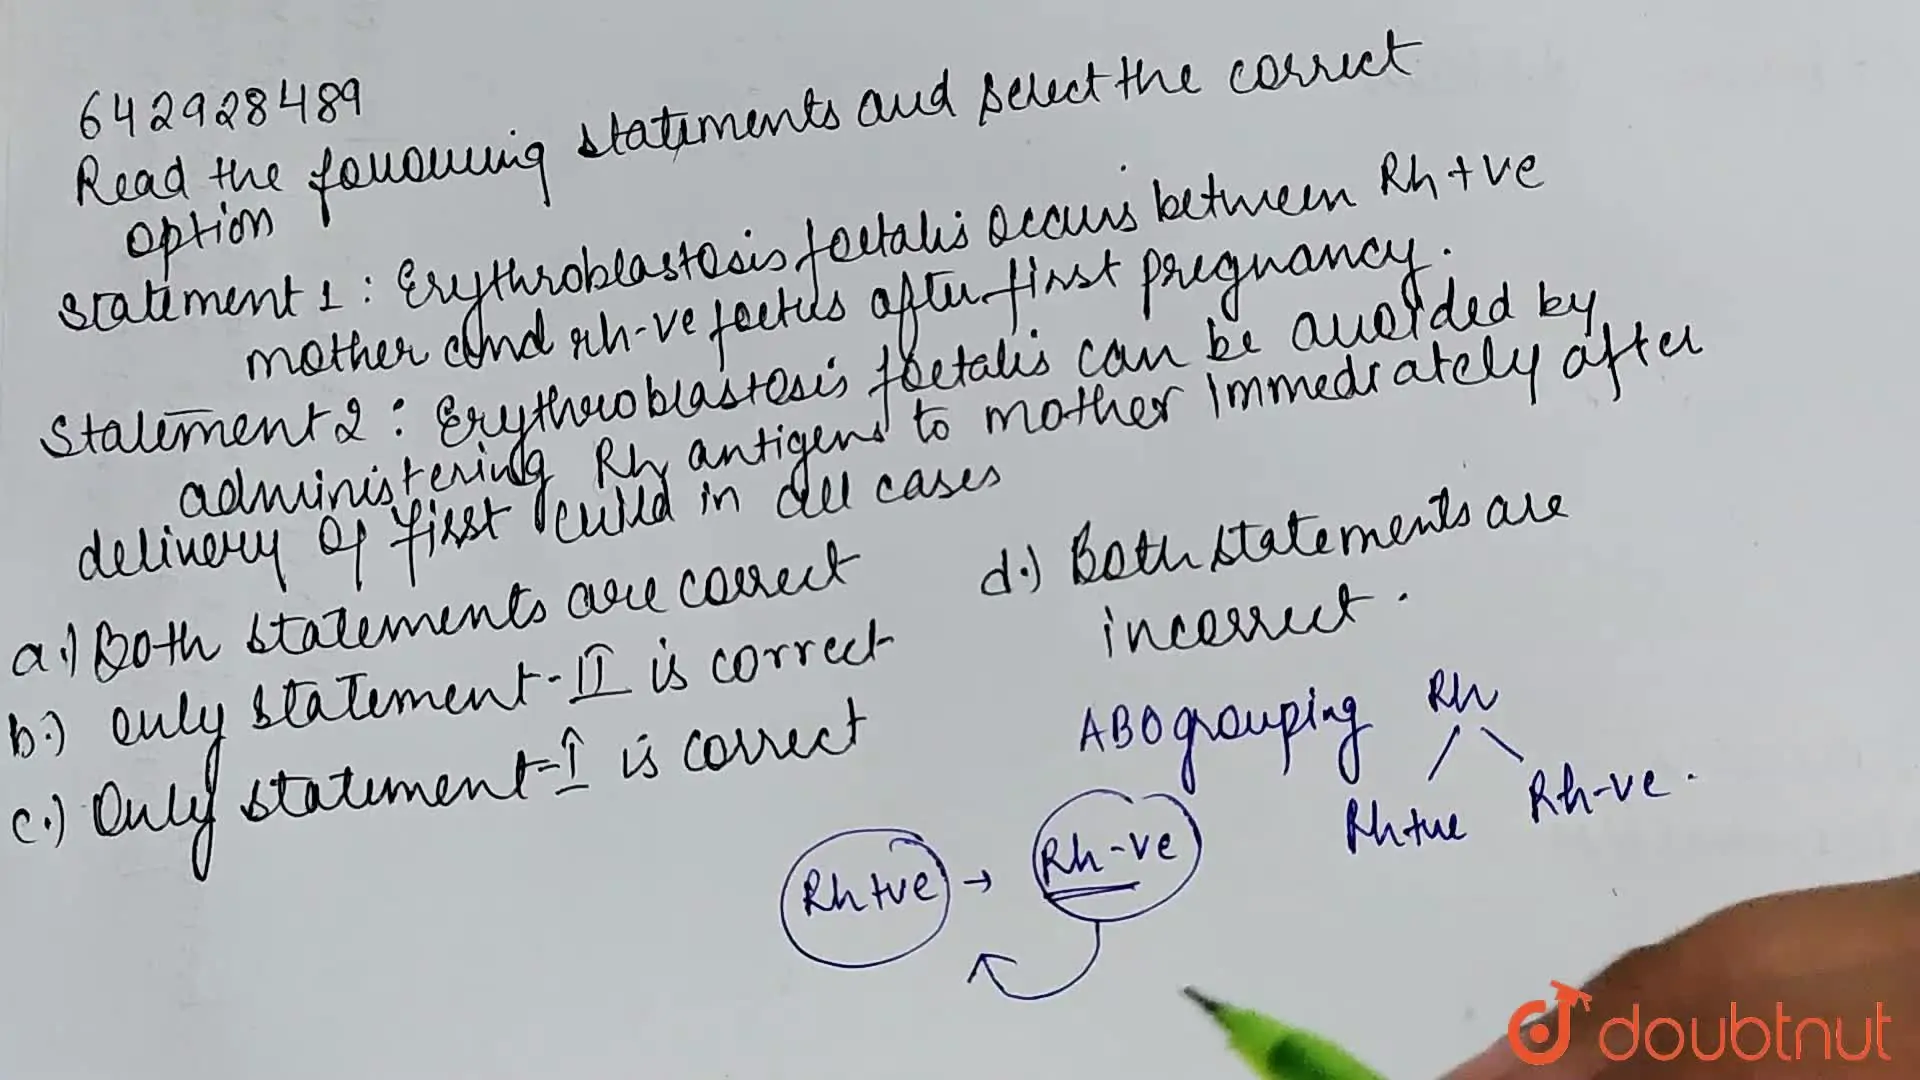 642928489
Read the following statements and select the correct
option
Statement 1 : Erythroblastosis foetalis occurs between Rh+ve
mother and rh-ve foetus after first pregnancy.
Statement 2 : Erythroblastosis foetalis can be avoided by
administering Rh antigens to mother immediately after
delivery of first child in all cases
a.) Both statements are correct
b.) Only statement-II is correct
c.) Only statement-I is correct
d.) Both statements are
incorrect.
ABO grouping Rh
Rh+ve Rh-ve.
Rh+ve → Rh-ve
doubtnut